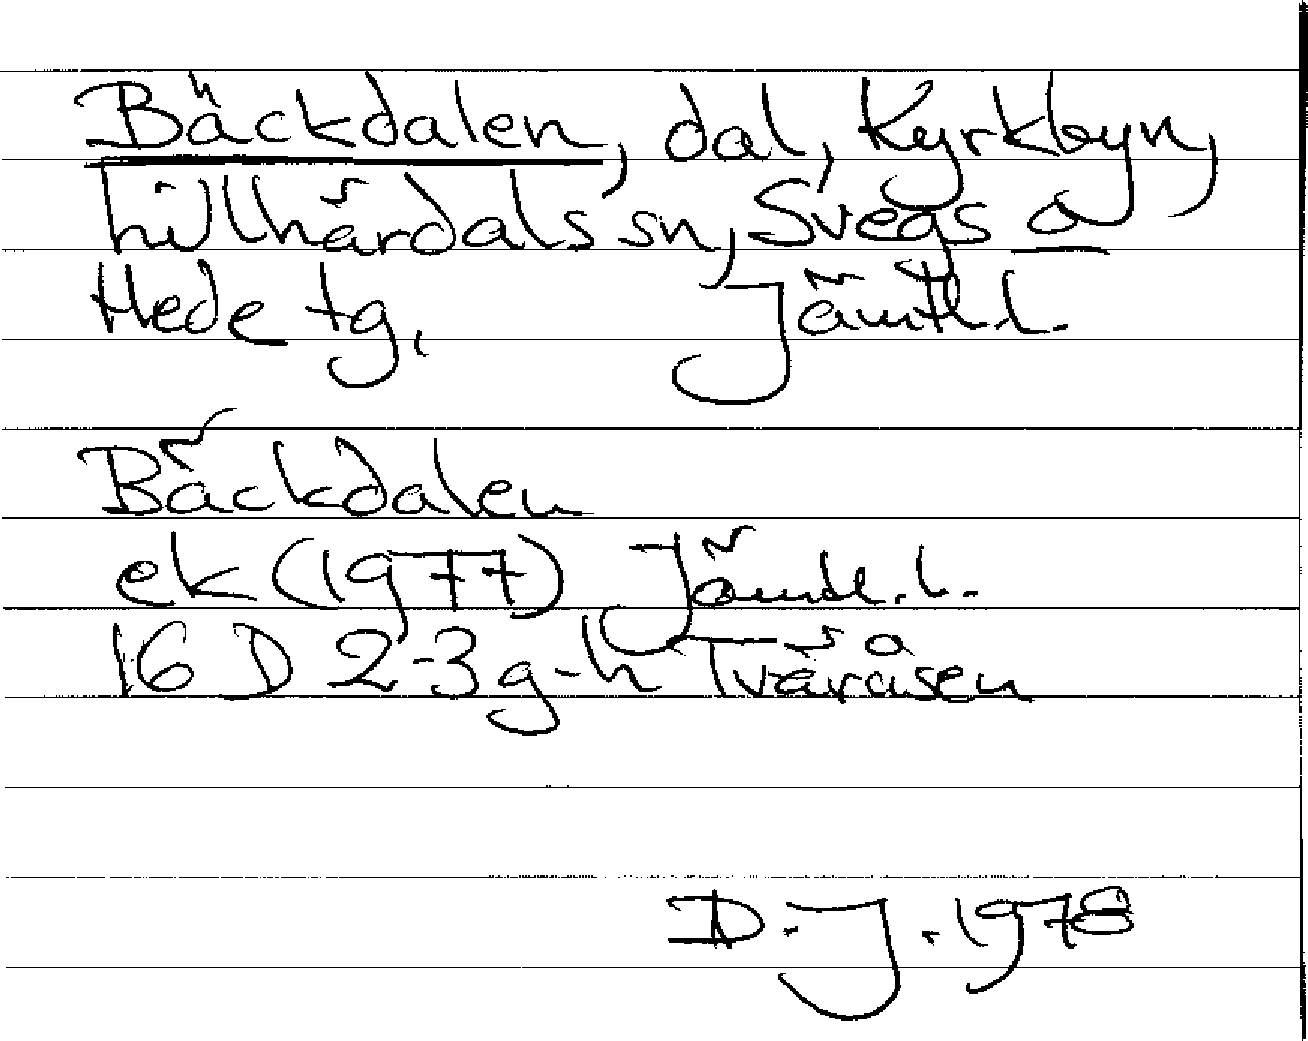 Bäckdalen, dal, Kyrkbyn,
Lillhärdals sn, Svegs o
Hede tg, Jämtl.l.
Bäckdalen
ek (1977) Jämtl.l.
16 D 2-3 g-h Tväråsen
D.J.1978